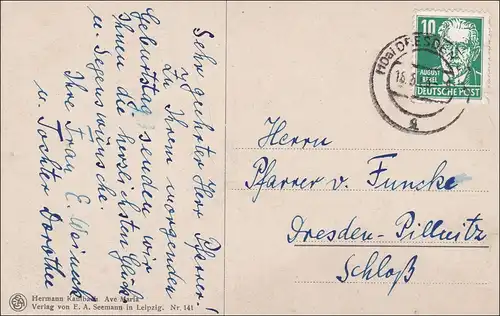 Sehr geehrter Herr Pfarrer!
Zu Ihrem morgenden
Geburtstag senden wir
Ihnen die herzlichsten Glück-
u. Segenswünsche.
Ihre Frau E. Weineck
u. Tochter Dorothee
Hermann Kaulbach. Ave Maria
Verlag von E. A. Seemann in Leipzig. Nr. 141
10
AUGUST
BEBEL
DEUTSCHE POST
(10a) DRESDEN
Herrn
Pfarrer v. Funcke
Dresden-Pillnitz
Schloß